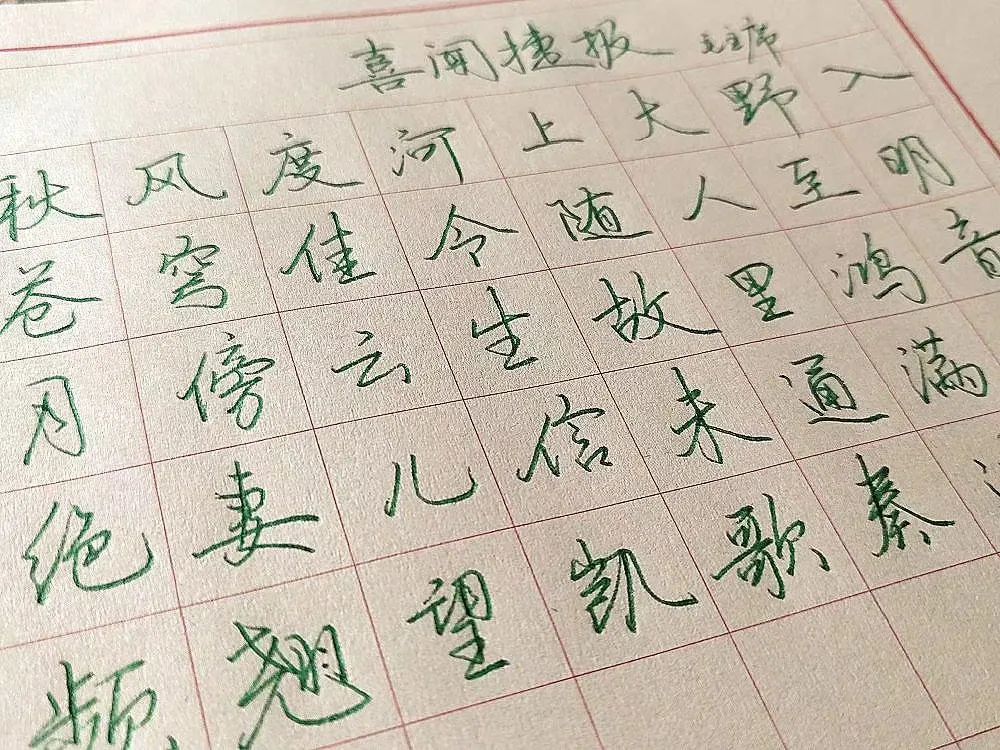 喜闻捷报 毛主席
秋风度河上大野入
苍穹佳令随人至明
月傍云生故里鸿音
绝妻儿信未通满
频翘望凯歌奏